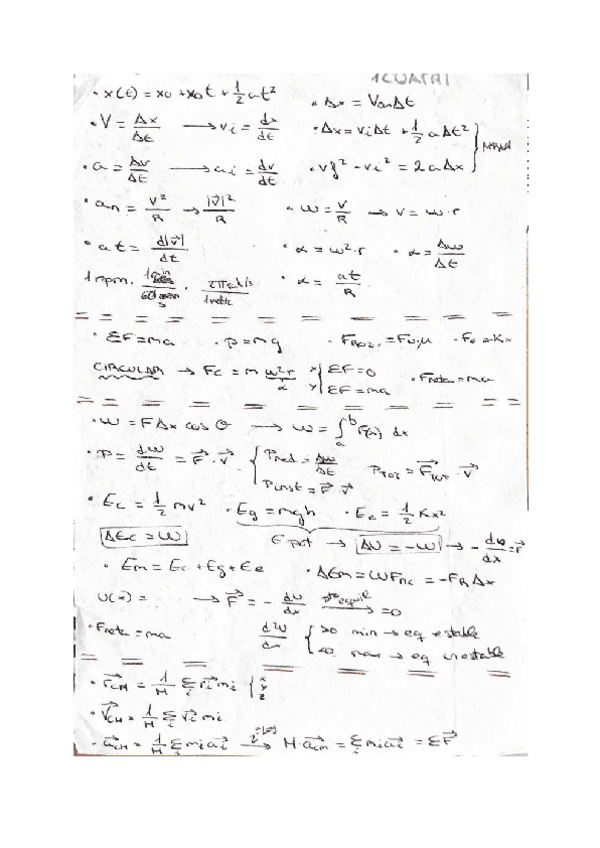 1CUATRI
• x(t) = x0 + x0t + 1/2 at² • Δx = Von Δt
• V = Δx/Δt → vi = dx/dt • Δx = viΔt + 1/2 aΔt²
• a = Δv/Δt → ai = dv/dt • vf² - vi² = 2aΔx
• an = v²/R → |v⃗|²/R • ω = v/R → v = ω·r
• at = d|v⃗|/dt • α = ω²·r • α = Δω/Δt
1 rpm · 1min/60 s · 2π rad/s / 1 • α = at/R
• ΣF = ma • p = mg • FROZ. = FN·μ • Fe = Kx
CIRCULAR → Fc = m ω²r/α x { ΣF = 0 y { ΣF = ma • Fneta = ma
• W = FΔx cos θ → W = ∫ₐᵇ F(x) dx
• P = dW/dt = F⃗ · v⃗ { Pmed = ΔW/Δt Pinst = F⃗·v⃗ Proz = F⃗roz · v⃗
• Ec = 1/2 mv² • Eg = mgh • Ee = 1/2 Kx²
ΔEc = W Epot → ΔU = -W → - dU/dx = F
• Em = Ec + Eg + Ee • ΔEm = WFnc = -FRΔx
U(x) = ... → F⃗ = - dU/dx pto equil → = 0
• Fneta = ma d²U/dx { >0 min → eq estable
<0 max → eq inestable
• r⃗CM = 1/M Σi r⃗i mi { x y z
• v⃗CM = 1/M Σi v⃗i mi
• a⃗CM = 1/M Σi mi a⃗i → M·a⃗CM = Σi mi a⃗i = ΣF⃗